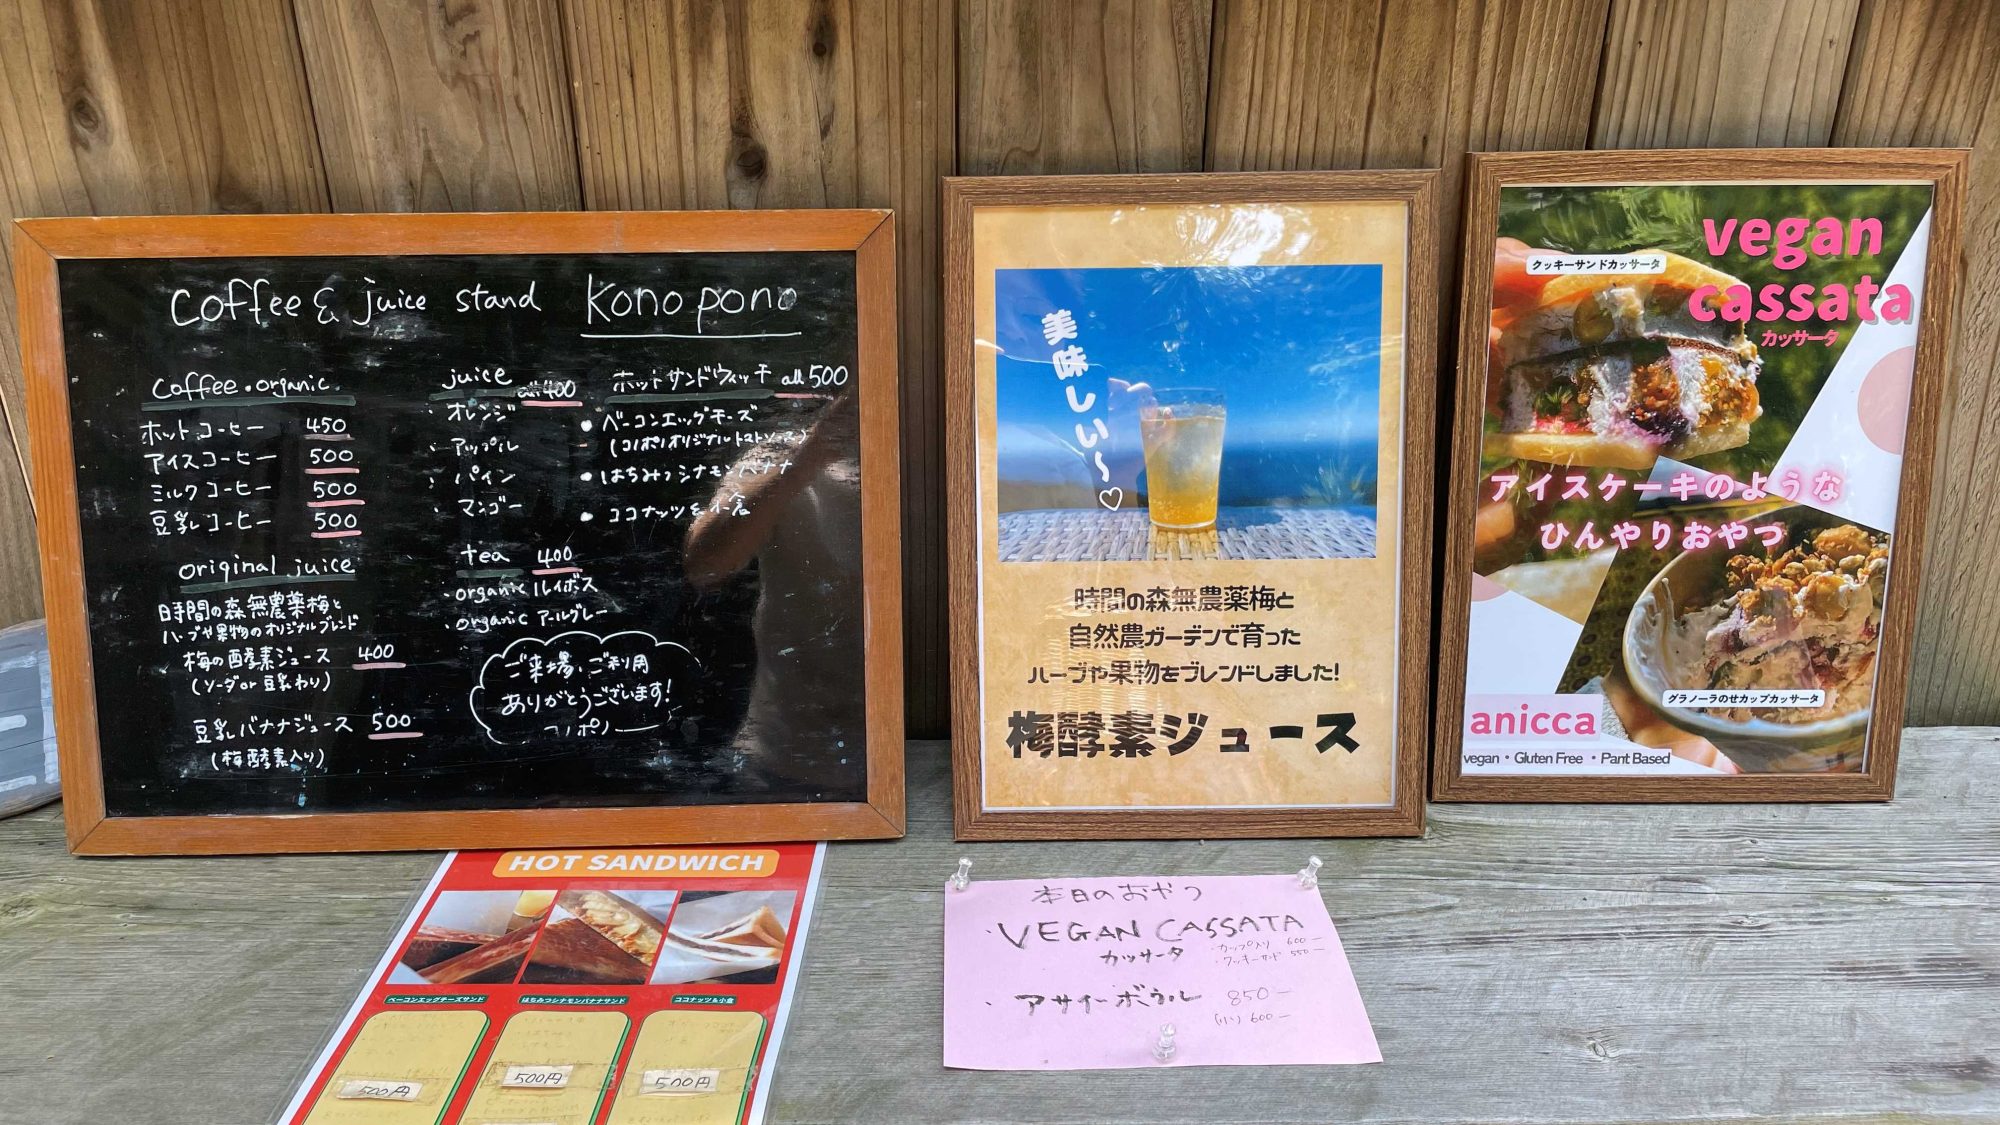 coffee & juice stand Konopono
coffee・organic
ホットコーヒー 450
アイスコーヒー 500
ミルクコーヒー 500
豆乳コーヒー 500
original juice
時間の森無農薬梅と
ハーブや果物のオリジナルブレンド
梅の酵素ジュース 400
(ソーダor豆乳わり)
豆乳バナナジュース 500
(梅酵素入り)
juice all 400
・オレンジ
・アップル
・パイン
・マンゴー
tea 400
・organic ルイボス
・organic アールグレー
ホットサンドウィッチ all 500
●ベーコンエッグチーズ
(コノポノオリジナルトマトソース)
●はちみつシナモンバナナ
●ココナッツ&小倉
ご来場、ご利用
ありがとうございます!
コノポノ
美味しい〜♡
時間の森無農薬梅と
自然農ガーデンで育った
ハーブや果物をブレンドしました!
梅酵素ジュース
vegan
cassata
カッサータ
クッキーサンドカッサータ
アイスケーキのような
ひんやりおやつ
グラノーラのせカップカッサータ
anicca
vegan・Gluten Free・Pant Based
HOT SANDWICH
ベーコンエッグチーズサンド
はちみつシナモンバナナサンド
ココナッツ&小倉
500円
500円
500円
本日のおやつ
・VEGAN CASSATA
カッサータ
・カップ入り 600ー
・クッキーサンド 550ー
・アサイーボウル 850ー
(小) 600ー